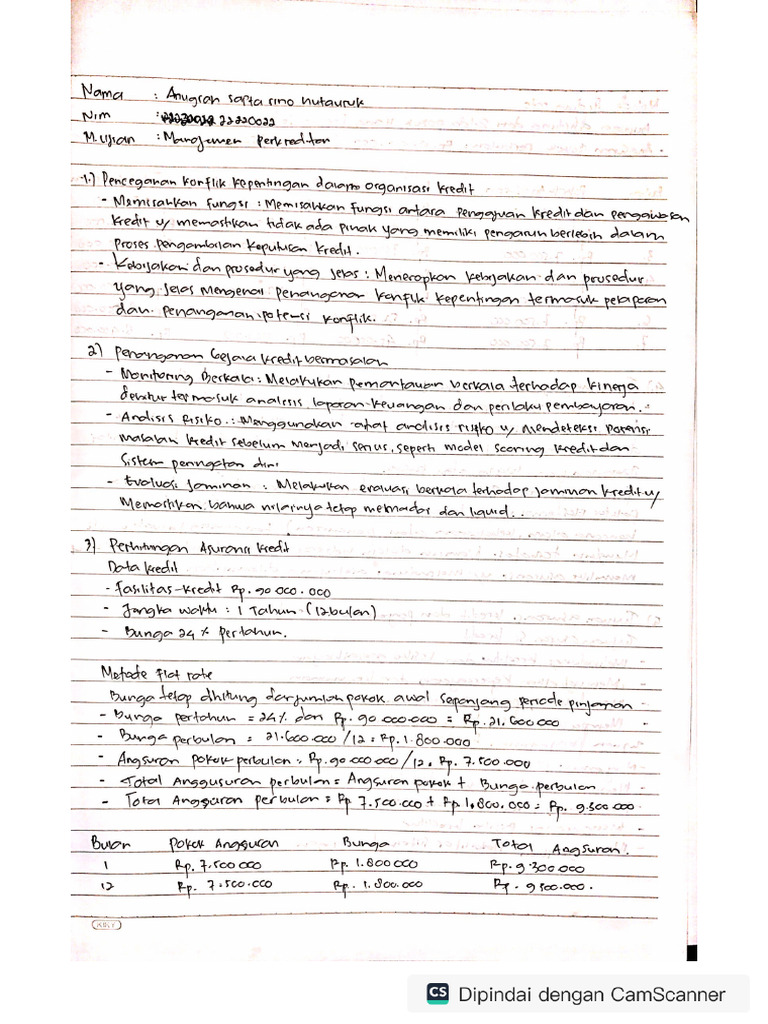 Nama : Anugrah sapta rino hutauruk
Nim : 22220022
M.ujian : Manajemen perkreditan
1.) Pencegahan konflik kepentingan dalam organisasi kredit
- Memisahkan fungsi : Memisahkan fungsi antara pengajuan kredit dan pengawasan
kredit u/ memastikan tidak ada pihak yang memiliki pengaruh berlebih dalam
proses pengambilan keputusan kredit.
- Kebijakan dan prosedur yang jelas : Menerapkan kebijakan dan prosedur
yang jelas mengenai penanganan konflik kepentingan termasuk pelaporan
dan penanganan potensi konflik.
2) Penanganan Gejala kredit bermasalah
- Monitoring Berkala : Melakukan pemantauan berkala terhadap kinerja
debitur termasuk analisis laporan keuangan dan perilaku pembayaran.
- Analisis Risiko : Menggunakan alat analisis risiko u/ mendeteksi potensi
masalah kredit sebelum menjadi serius, seperti model scoring kredit dan
sistem peringatan dini
- Evaluasi Jaminan : Melakukan evaluasi berkala terhadap jaminan kredit u/
Memastikan bahwa nilainya tetap memadai dan liquid.
3) Perhitungan Asuransi kredit
Data kredit
- fasilitas kredit Rp. 90 000.000
- Jangka waktu : 1 Tahun (12 bulan)
- Bunga 24 % pertahun.
Metode flat rate
Bunga tetap dihitung dari jumlah pokok awal sepanjang periode pinjaman
- Bunga pertahun = 24% dari Rp. 90 000.000 = Rp. 21.600 000
- Bunga perbulan = 21.600.000 /12 = Rp. 1.800.000
- Angsuran pokok perbulan = Rp. 90 000 000 /12 = Rp. 7.500.000
- Total Anggusuran perbulan = Angsuran pokok + Bunga perbulan
- Total Angsuran perbulan = Rp 7.500.000 + Rp 1.800.000 = Rp. 9.300 000
Bulan Pokok Angsuran Bunga Total Angsuran.
1 Rp. 7.500 000 Rp. 1.800 000 Rp. 9.300 000
12 Rp. 7.500.000 Rp. 1.800.000 Rp. 9 300.000.
KIKY
CS Dipindai dengan CamScanner